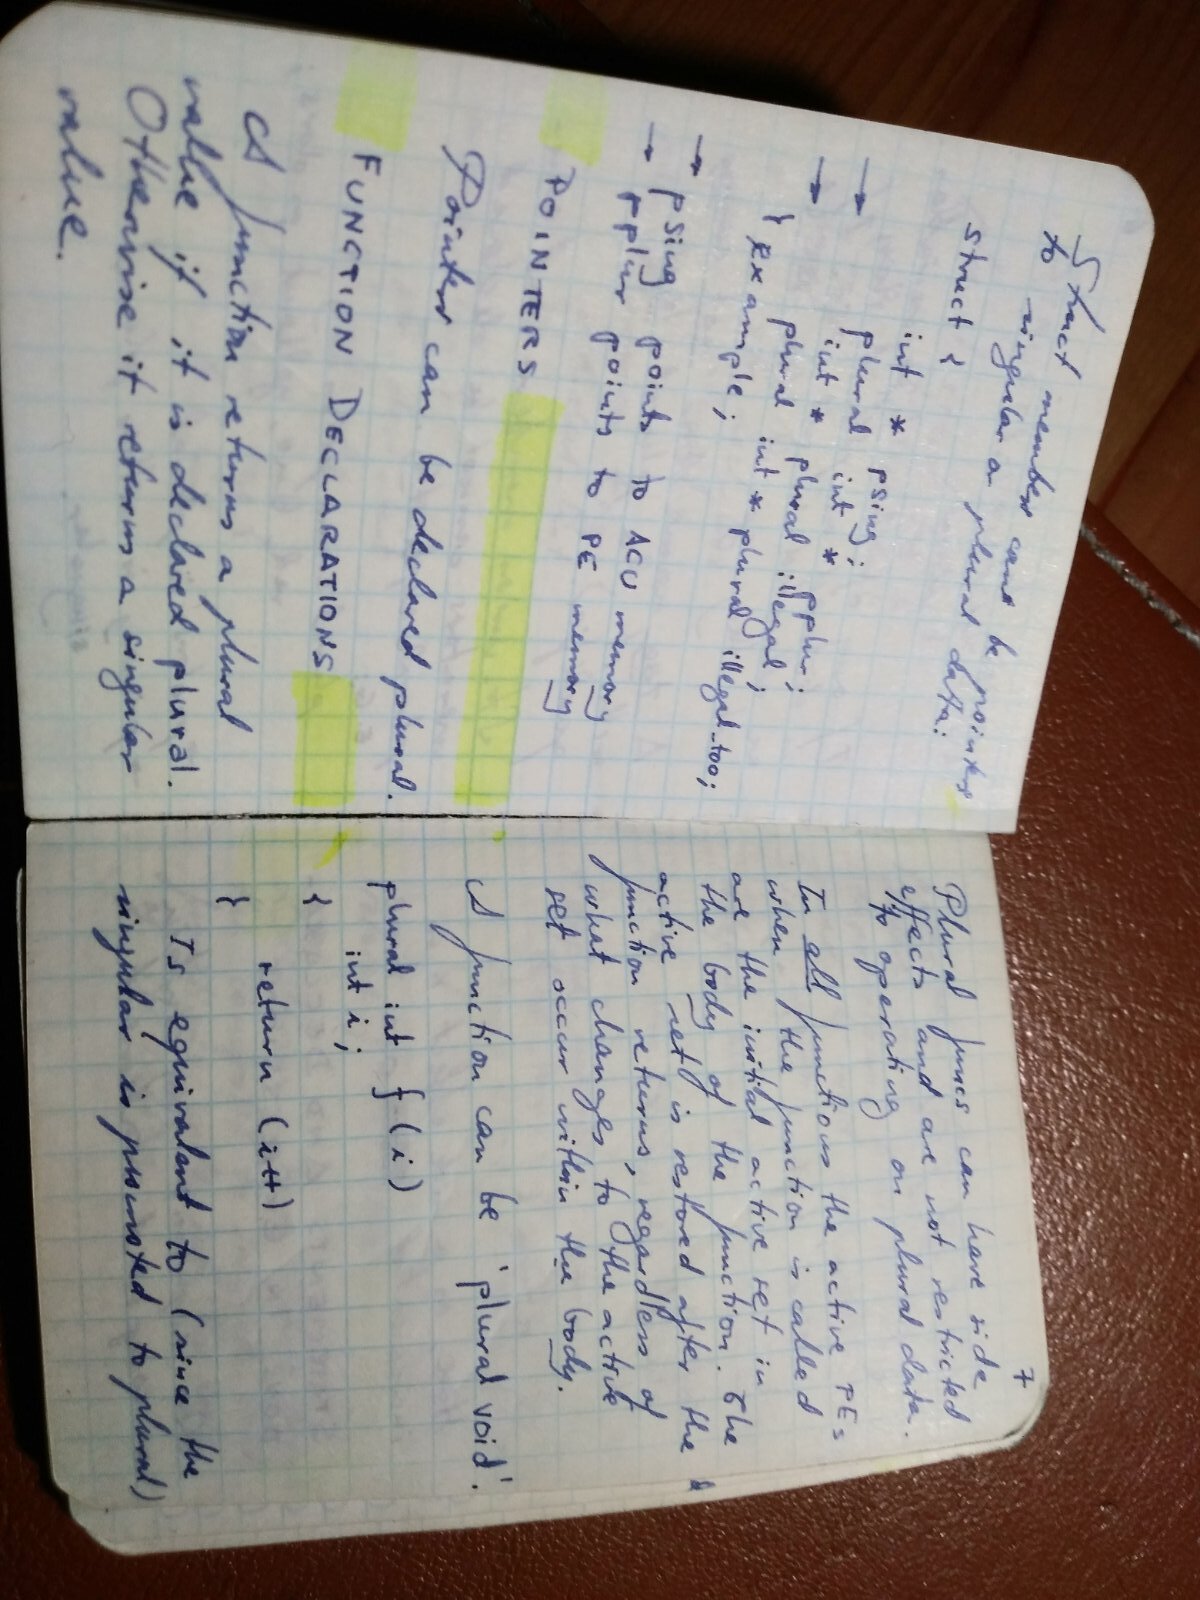 Struct member can be pointer
to singular or plural data:
struct {
int * psing;
plural int * pplur;
→ int * plural illegal;
→ plural int * plural illegal_too;
} example;
→ psing points to ACU memory
→ pplur points to PE memory
POINTERS
Pointer can be declared plural.
FUNCTION DECLARATIONS
A function returns a plural
value if it is declared plural.
Otherwise it returns a singular
value.
7
Plural funcs can have side
effects and are not restricted
to operating on plural data.
In all functions the active PEs
when the function is called
are the initial active set in
the body of the function. The
active set is restored after the
function returns, regardless of
what changes to the active
set occur within the body.
A function can be 'plural void'.
plural int f (i)
int i;
{
return (i++)
}
Is equivalent to (since the
singular is promoted to plural)